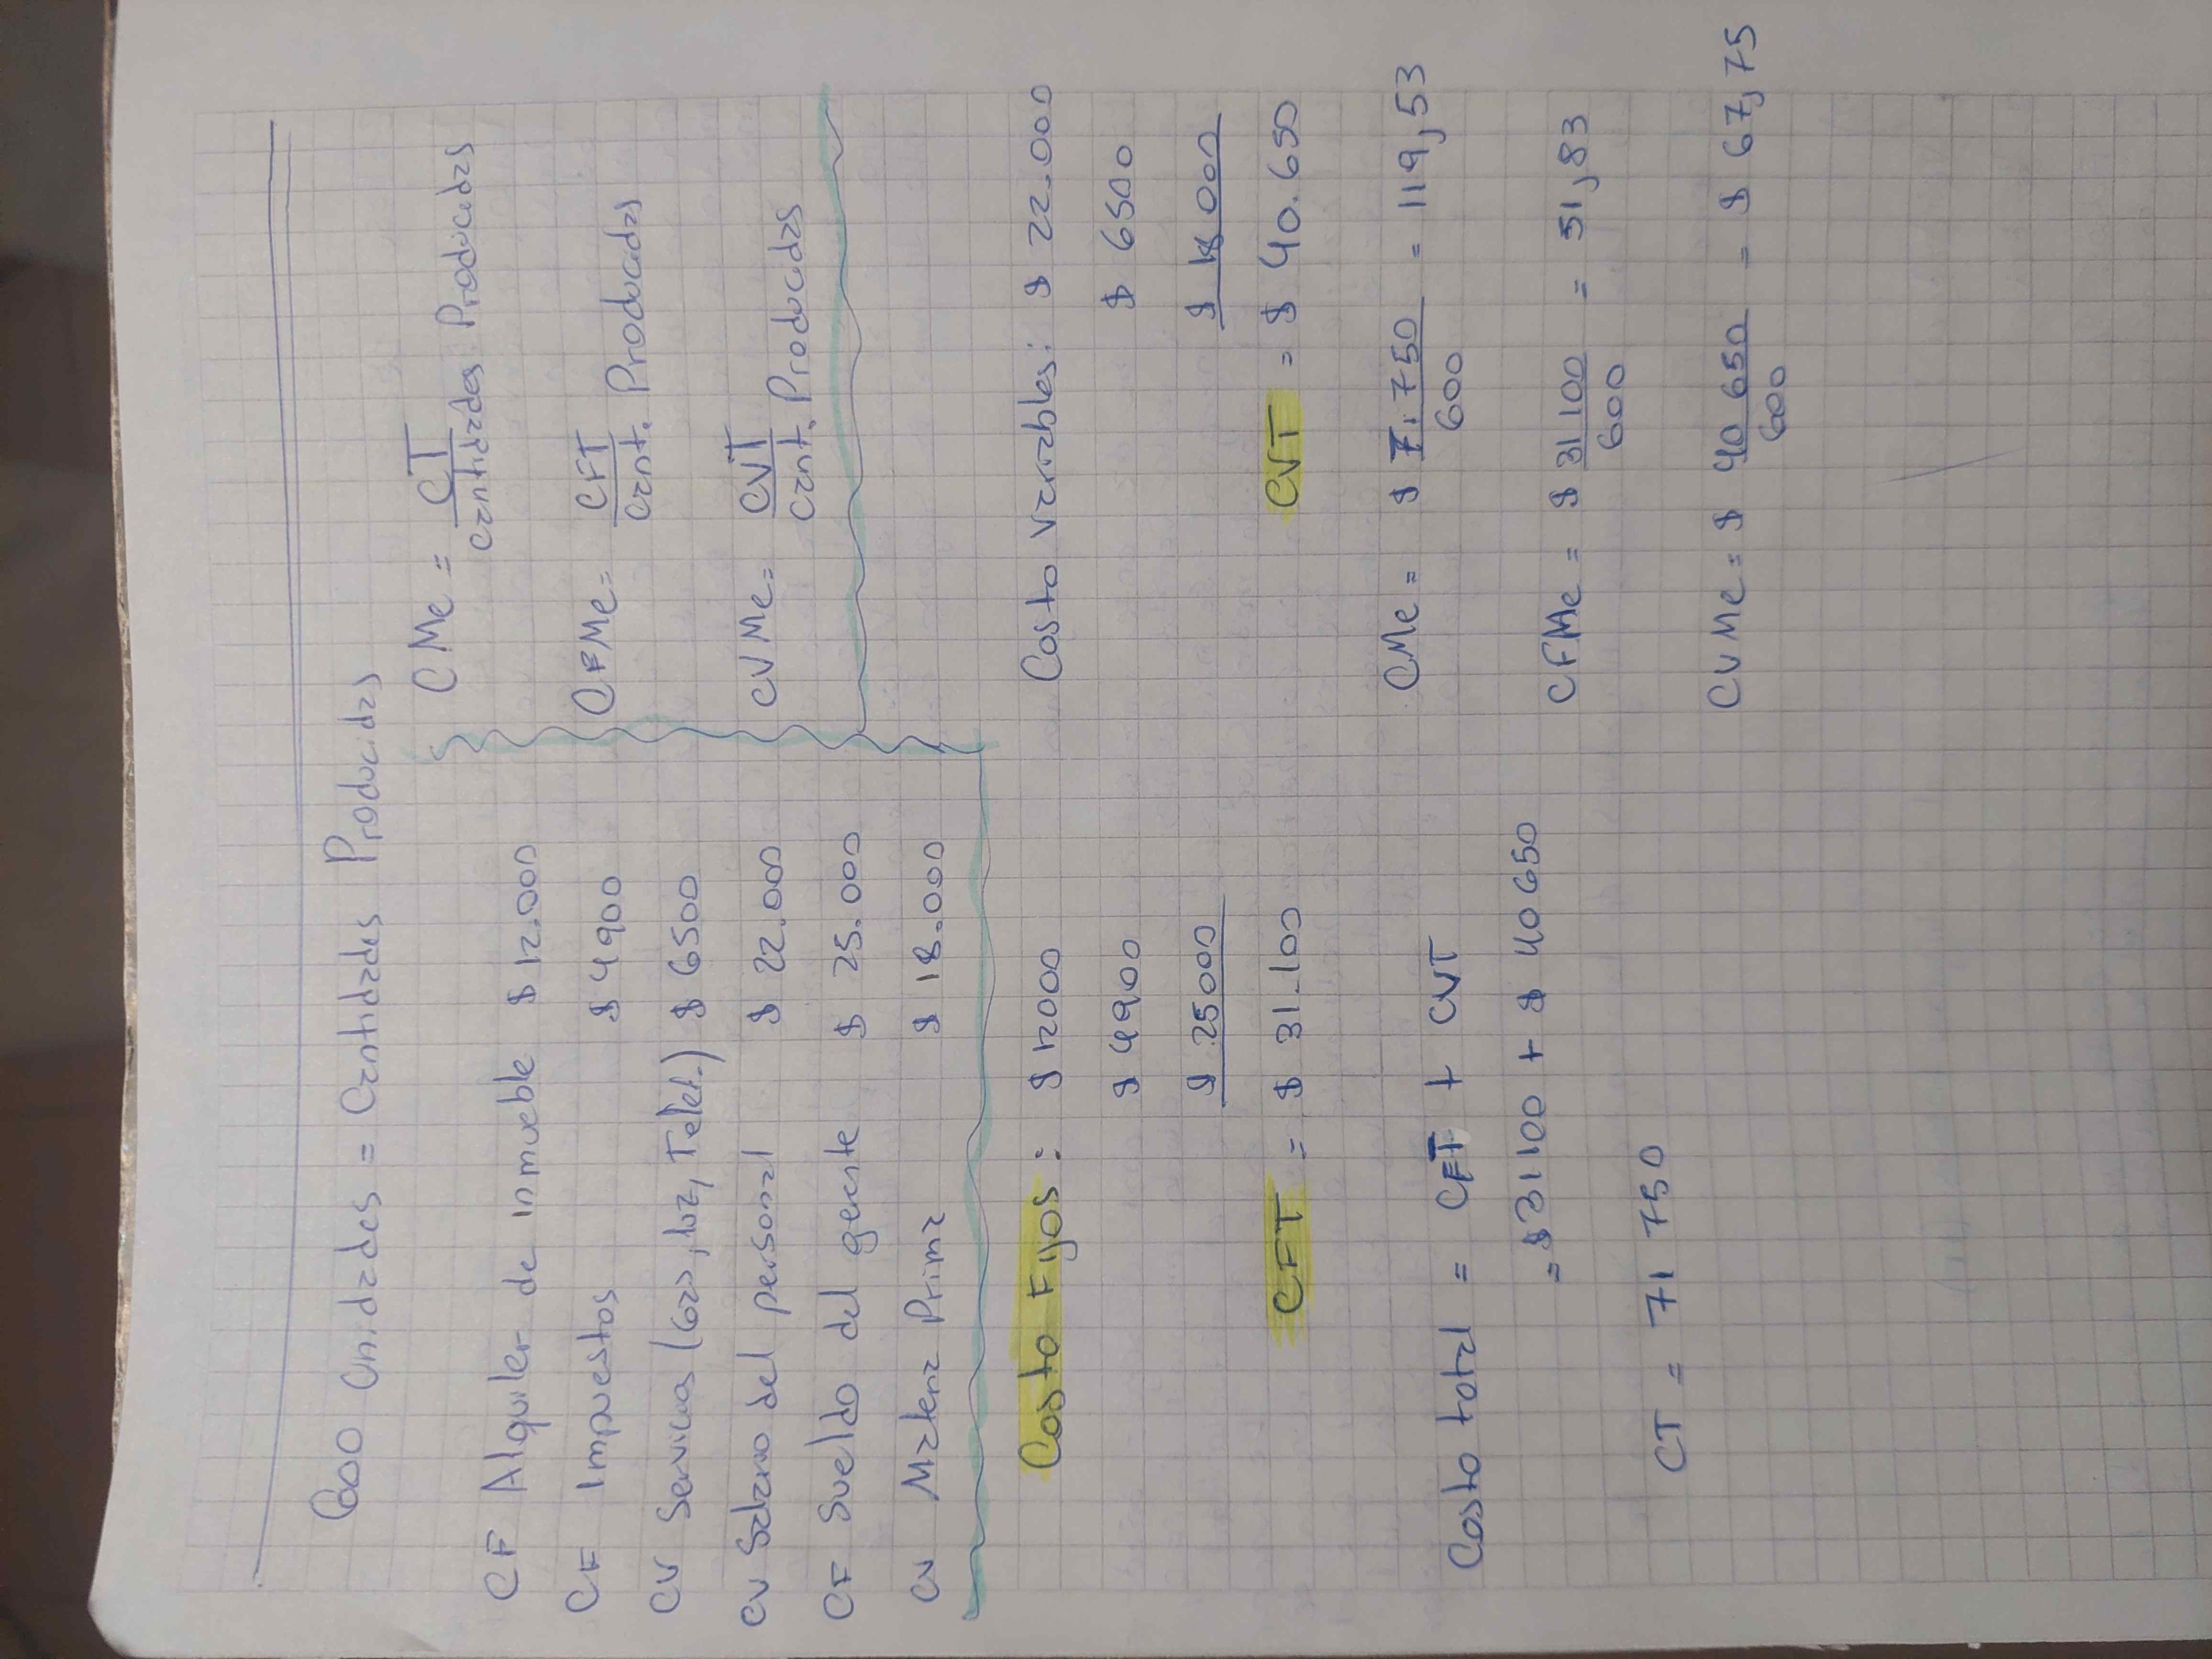 600 Unidades = Cantidades Producidas
CF Alquiler de inmueble $ 12.000
CF Impuestos $ 4900
CV Servicios (Gas, luz, Telef.) $ 6500
CV Salario del personal $ 22.000
CF Sueldo del gerente $ 25.000
CV Materia Prima $ 18.000
CMe = CT
Cantidades Producidas
CFMe = CFT
Cant. Producidas
CVMe = CVT
Cant. Producidas
Costo Fijos: $ 12000
$ 4900
$ 25000
CFT = $ 31.100
Costo Variables: $ 22.000
$ 6500
$ 18000
CVT = $ 40.650
Costo total = CFT + CVT
= $ 31100 + $ 40650
CT = 71 750
CMe = $ 71.750 = 119,53
600
CFMe = $ 31100 = 51,83
600
CVMe = $ 40 650 = $ 67,75
600